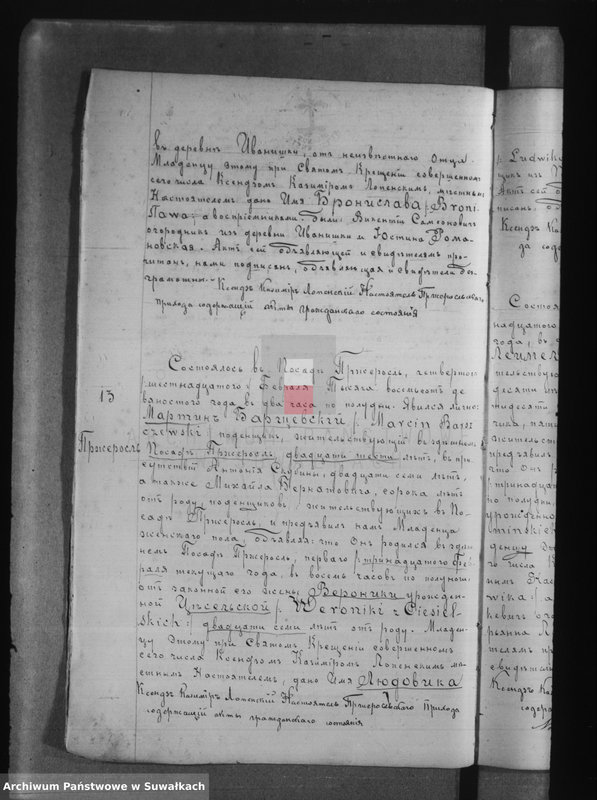 въ деревнѣ Иванишки, отъ неизвѣстнаго отца.
Младенцу этому при Святомъ Крещеніи совершенномъ
сего числа Ксендзомъ Казиміромъ Лопенскимъ, мѣстнымъ
Настоятелемъ дано Имя Бронислава /: Broni
sława :/ а воспріемниками были: Викентій Самсоновичъ
огородникъ изъ деревни Иванишки и Юстина Рома-
новская. Актъ сей объявляющей и свидѣтелямъ про-
читанъ, нами подписанъ, объявляющая и свидѣтели без-
грамотны. Ксендзъ Казиміръ Лопенскій Настоятель Пржеросльскаго
прихода содержащій акты гражданскаго состоянія
13
Пржеросль
Состоялось въ Посадѣ Пржеросль, четвертаго
/шестнадцатаго/ Февраля Тысяча восемьсотъ де
вяностаго года въ два часа по полудни. Явился лично:
Мартинъ Барщевскій /: Marcin Barsz
czewski :/ поденщикъ, жительствующій въ здѣшнемъ
Посадѣ Пржеросль, двадцати шести лѣтъ, въ при-
сутствіи Антонія Скубины, двадцати семи лѣтъ,
а также Михаила Бернатовича, сорока лѣтъ
отъ роду, поденщиковъ, жительствующихъ въ По-
садѣ Пржеросль, и предъявилъ намъ Младенца
женскаго пола, объявляя: что онъ родился въ здѣш-
немъ Посадѣ Пржеросль, перваго /тринадцатаго/ Фев-
раля текущаго года, въ восемь часовъ по полуночи
отъ законной его жены Вероники урожден-
ной Цѣсельской /: Weroniki z Ciesiel-
skich :/ двадцати семи лѣтъ отъ роду. Младен-
цу этому при Святомъ Крещеніи совершенномъ
сего числа Ксендзомъ Казиміромъ Лопенскимъ мѣ-
стнымъ Настоятелемъ, дано Имя Людовика
Ксендзъ Казиміръ Лопенскій Настоятель Пржеросльскаго Прихода
содержащій акты гражданскаго состоянія
Archiwum Państwowe w Suwałkach